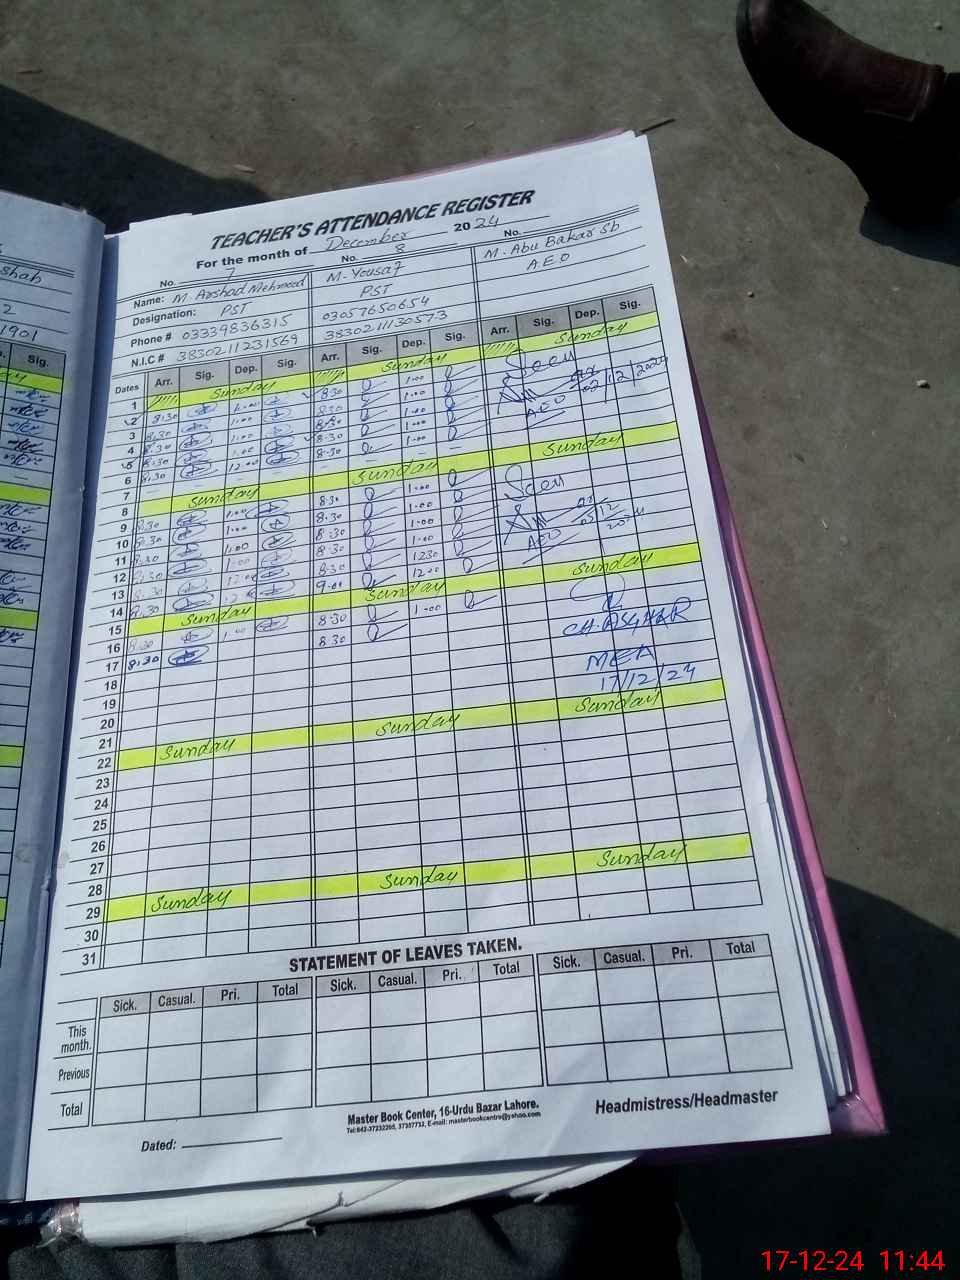 shah
2
1901
Sig.
TEACHER'S ATTENDANCE REGISTER
For the month of December 2024
No. 7 No. 8 No.
Name: M. Arshad Mehmood M. Yousaf M. Abu Bakar Sb
Designation: PST PST A.E.O
Phone # 03339836315 03057650654
N.I.C # 3830211231569 3830211130573
Dates Arr. Sig. Dep. Sig. Arr. Sig. Dep. Sig. Arr. Sig. Dep. Sig.
1 Sunday Sunday Sunday
2 8:30 1:00 8:30 1:00 Seen
3 8:30 1:00 8:30 1:00 AEO 02/12/2024
4 8:30 1:00 8:30 1:00
5 8:30 1:00 8:30 1:00
6 8:30 12:00 8:30
7
8 Sunday Sunday Sunday
9 8:30 1:00 8:30 1:00 Seen
10 8:30 1:00 8:30 1:00
11 8:30 1:00 8:30 1:00 AEO 2024
12 8:30 1:00 8:30 1:00
13 8:30 12:00 8:30 1230
14 8:30 12 9:00 12:00
15 Sunday Sunday Sunday
16 8:30 1:00 8:30 1:00
17 8:30 8:30 CH. ASGHAR
18 MEA
19 17/12/24
20
21
22 Sunday Sunday Sunday
23
24
25
26
27
28
29 Sunday Sunday Sunday
30
31
STATEMENT OF LEAVES TAKEN.
Sick. Casual. Pri. Total Sick. Casual. Pri. Total Sick. Casual. Pri. Total
This month.
Previous
Total
Master Book Center, 16-Urdu Bazar Lahore.
Headmistress/Headmaster
Dated:
17-12-24 11:44